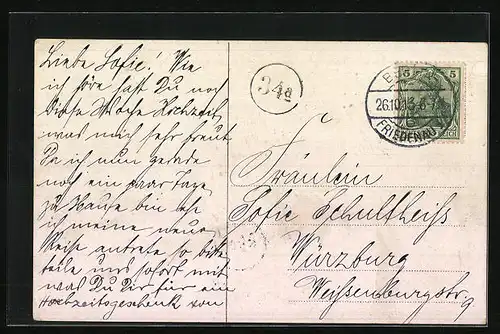 Liebe Sofie! Wie
ich höre hast Du noch
diese Woche Hochzeit,
was mich sehr freut.
Da ich nun gerade
noch ein paar Tage
zu Hause bin eh
ich meine neue
Reise antrete so bitte
teile uns sofort mit
was Du Dir für ein
Hochzeitsgeschenk von
34a
5 5
REICH
26.10.13. 6-7
FRIEDENAU
Fräulein
Sofie Schultheiss
Würzburg
Weissenburgstr. 9